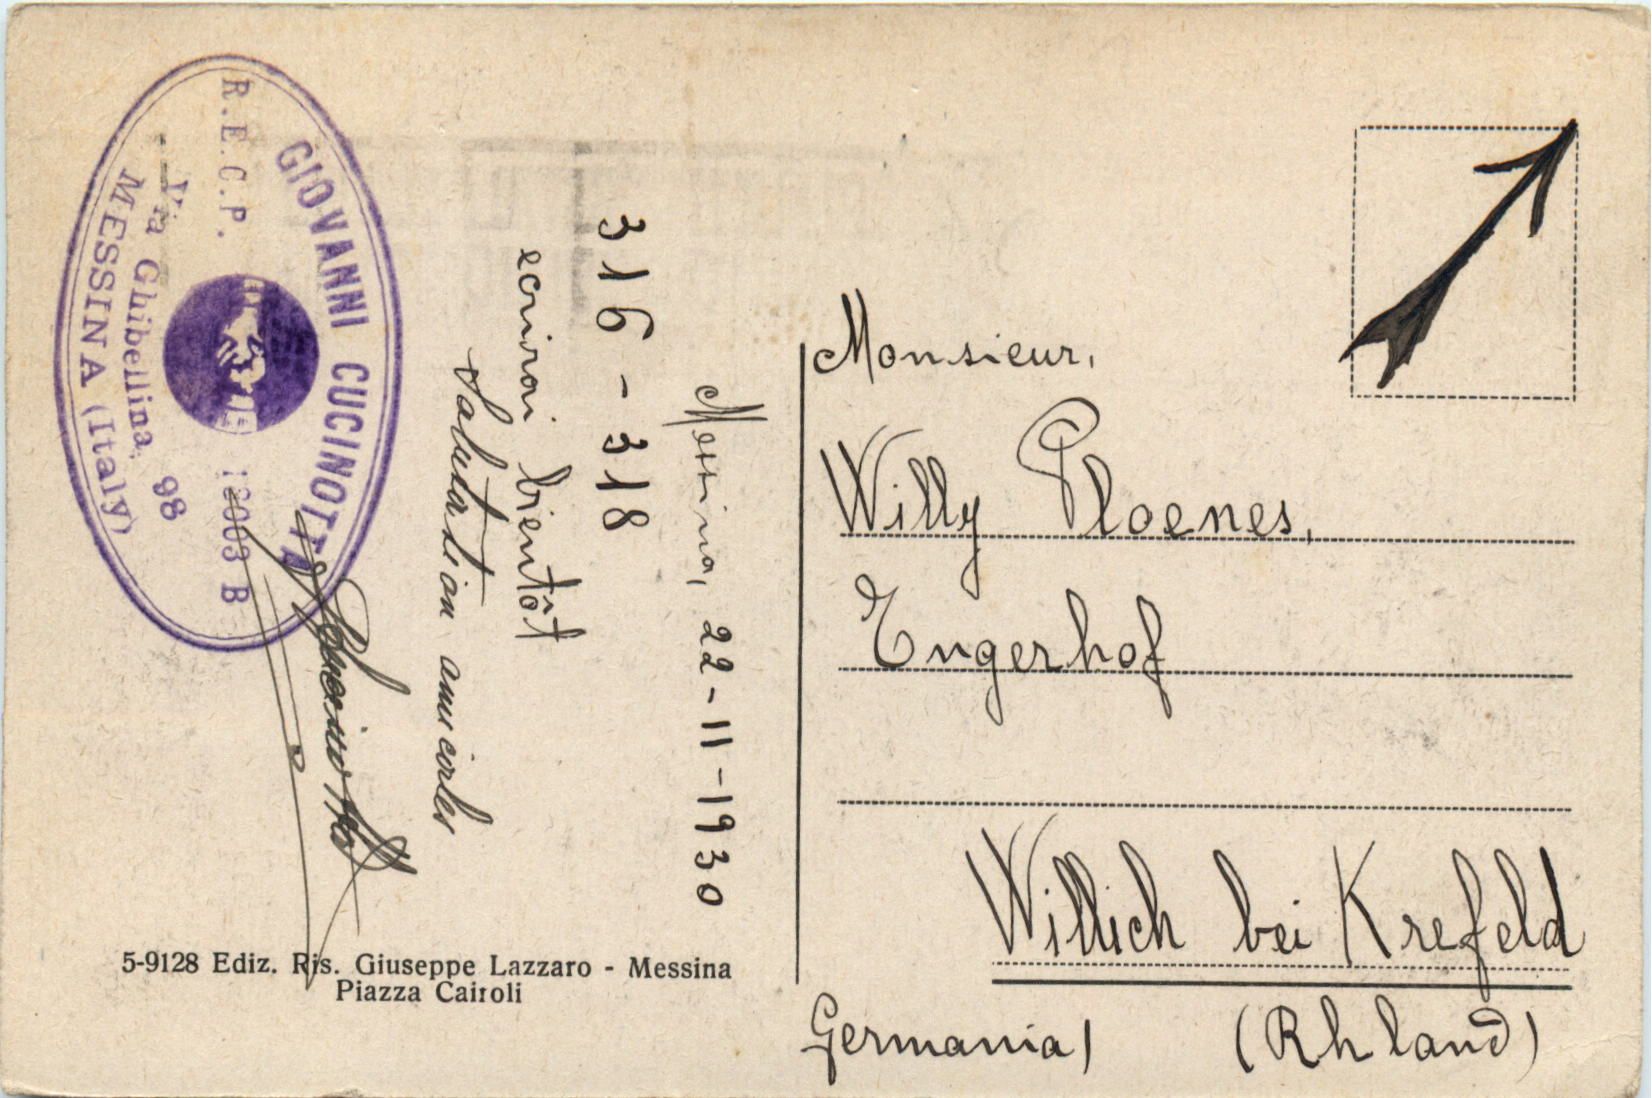 GIOVANNI CUCINOTTA
R.E.C.P. 12003 B
Via Ghibellina, 98
MESSINA (Italy)
Messina, 22-11-1930
316-318
ecrirai bientôt
Salutation amicales
GCucinotta
5-9128 Ediz. Ris. Giuseppe Lazzaro - Messina
Piazza Cairoli
Monsieur,
Willy Ploenes,
Engerhof
Willich bei Krefeld
Germania) (Rhland)